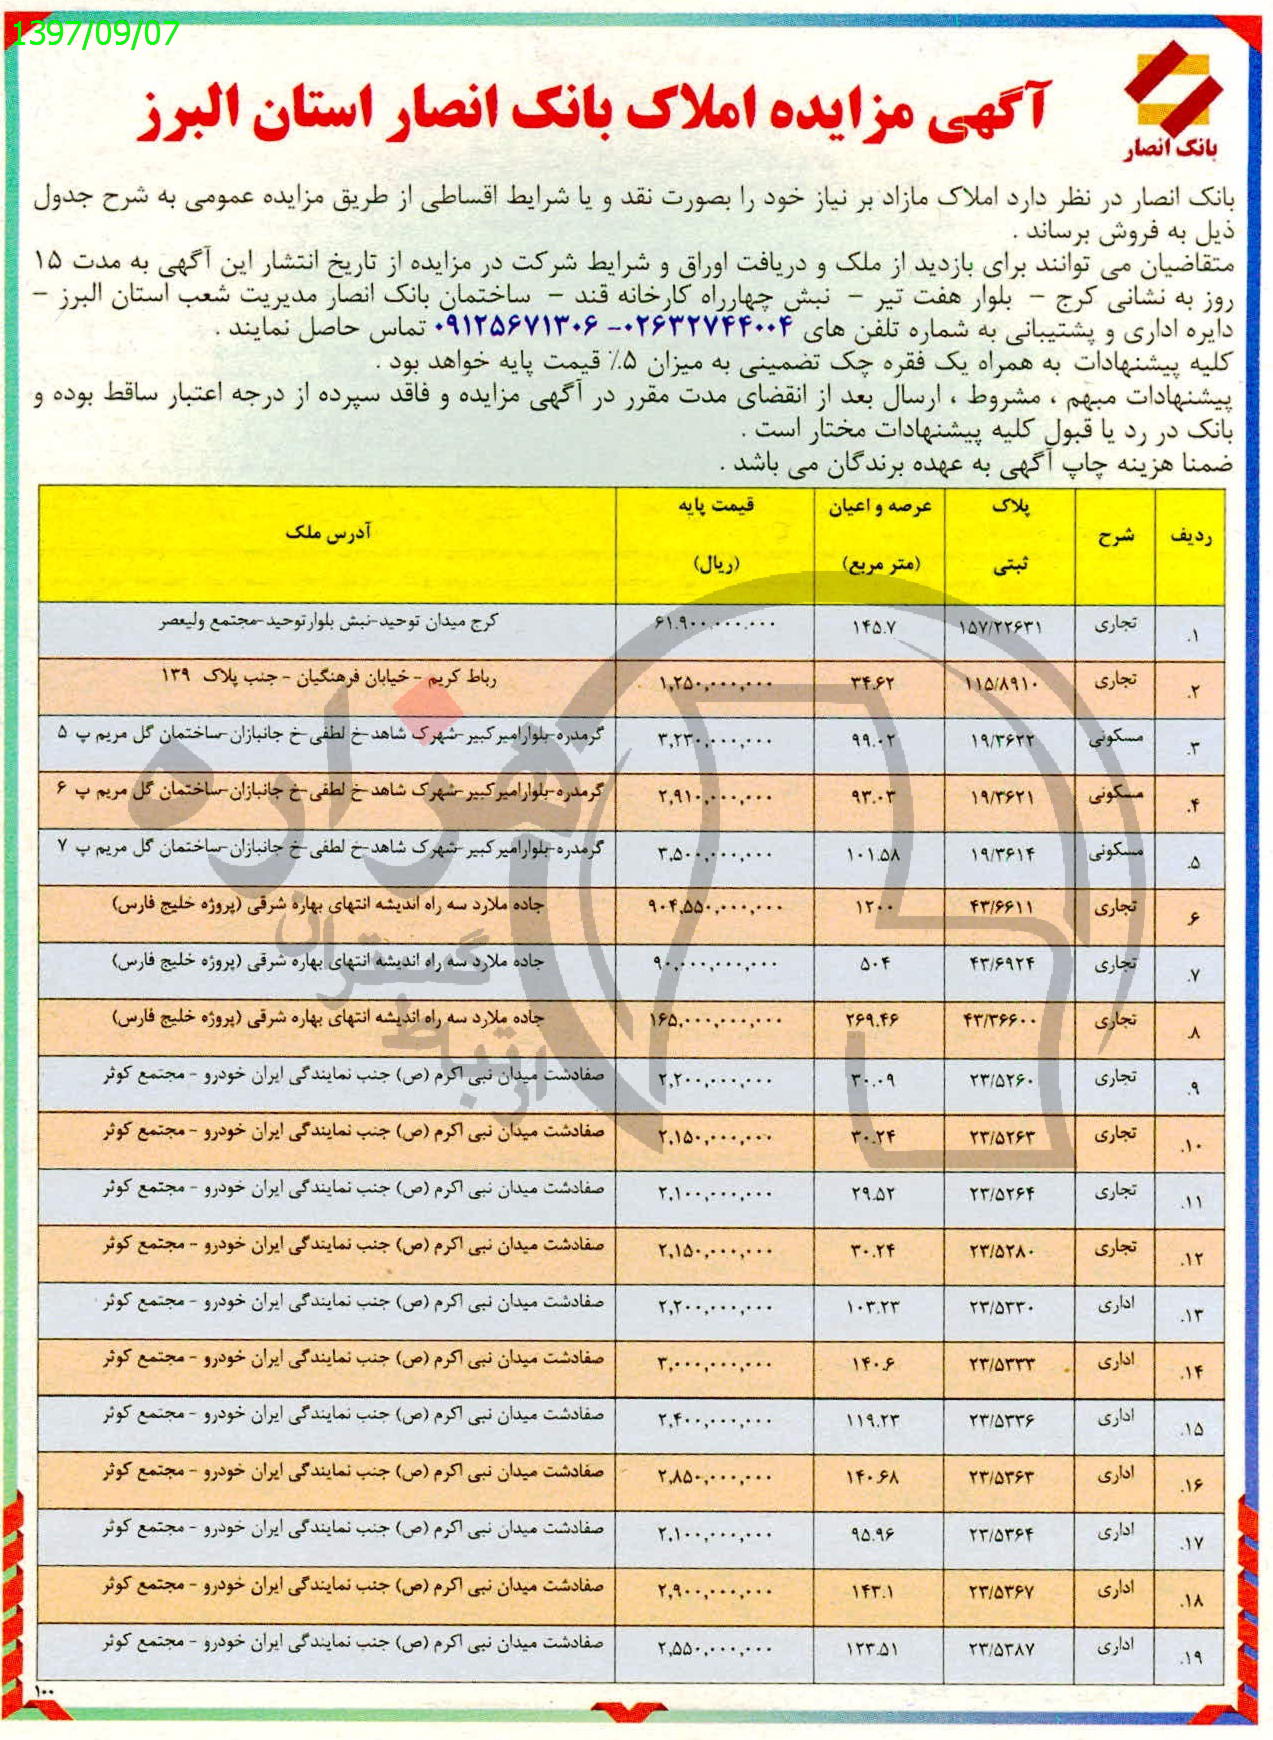 1397/09/07
بانک انصار
آگهی مزایده املاک بانک انصار استان البرز
بانک انصار در نظر دارد املاک مازاد بر نیاز خود را بصورت نقد و یا شرایط اقساطی از طریق مزایده عمومی به شرح جدول
ذیل به فروش برساند .
متقاضیان می توانند برای بازدید از ملک و دریافت اوراق و شرایط شرکت در مزایده از تاریخ انتشار این آگهی به مدت ۱۵
روز به نشانی کرج – بلوار هفت تیر – نبش چهارراه کارخانه قند – ساختمان بانک انصار مدیریت شعب استان البرز –
دایره اداری و پشتیبانی به شماره تلفن های ۰۲۶۳۲۷۴۴۰۰۴-۰۹۱۲۵۶۷۱۳۰۶ تماس حاصل نمایند .
کلیه پیشنهادات به همراه یک فقره چک تضمینی به میزان ۵٪ قیمت پایه خواهد بود .
پیشنهادات مبهم ، مشروط ، ارسال بعد از انقضای مدت مقرر در آگهی مزایده و فاقد سپرده از درجه اعتبار ساقط بوده و
بانک در رد یا قبول کلیه پیشنهادات مختار است .
ضمنا هزینه چاپ آگهی به عهده برندگان می باشد .
ردیف شرح پلاک ثبتی عرصه و اعیان (متر مربع) قیمت پایه (ریال) آدرس ملک
۱. تجاری ۱۵۷/۲۲۶۳۱ ۱۴۵.۷ ۶۱.۹۰۰.۰۰۰.۰۰۰ کرج میدان توحید-نبش بلوارتوحید-مجتمع ولیعصر
۲. تجاری ۱۱۵/۸۹۱۰ ۳۴.۶۲ ۱,۲۵۰,۰۰۰,۰۰۰ رباط کریم - خیابان فرهنگیان - جنب پلاک ۱۳۹
۳. مسکونی ۱۹/۳۶۲۲ ۹۹.۰۲ ۳,۲۳۰,۰۰۰,۰۰۰ گرمدره-بلوارامیرکبیر-شهرک شاهد-خ لطفی-خ جانبازان-ساختمان گل مریم پ ۵
۴. مسکونی ۱۹/۳۶۲۱ ۹۳.۰۳ ۲,۹۱۰,۰۰۰,۰۰۰ گرمدره-بلوارامیرکبیر-شهرک شاهد-خ لطفی-خ جانبازان-ساختمان گل مریم پ ۶
۵. مسکونی ۱۹/۳۶۱۴ ۱۰۱.۵۸ ۳,۵۰۰,۰۰۰,۰۰۰ گرمدره-بلوارامیرکبیر-شهرک شاهد-خ لطفی-خ جانبازان-ساختمان گل مریم پ ۷
۶ تجاری ۴۳/۶۶۱۱ ۱۲۰۰ ۹۰۴,۵۵۰,۰۰۰,۰۰۰ جاده ملارد سه راه اندیشه انتهای بهاره شرقی (پروژه خلیج فارس)
۷. تجاری ۴۳/۶۹۲۴ ۵۰۴ ۹۰,۰۰۰,۰۰۰,۰۰۰ جاده ملارد سه راه اندیشه انتهای بهاره شرقی (پروژه خلیج فارس)
۸. تجاری ۴۳/۳۶۶۰۰ ۲۶۹.۴۶ ۱۶۵,۰۰۰,۰۰۰,۰۰۰ جاده ملارد سه راه اندیشه انتهای بهاره شرقی (پروژه خلیج فارس)
۹. تجاری ۲۳/۵۲۶۰ ۳۰.۰۹ ۲,۲۰۰,۰۰۰,۰۰۰ صفادشت میدان نبی اکرم (ص) جنب نمایندگی ایران خودرو - مجتمع کوثر
۱۰. تجاری ۲۳/۵۲۶۳ ۳۰.۲۴ ۲,۱۵۰,۰۰۰,۰۰۰ صفادشت میدان نبی اکرم (ص) جنب نمایندگی ایران خودرو - مجتمع کوثر
۱۱. تجاری ۲۳/۵۲۶۴ ۲۹.۵۲ ۲,۱۰۰,۰۰۰,۰۰۰ صفادشت میدان نبی اکرم (ص) جنب نمایندگی ایران خودرو - مجتمع کوثر
۱۲. تجاری ۲۳/۵۲۸۰ ۳۰.۲۴ ۲,۱۵۰,۰۰۰,۰۰۰ صفادشت میدان نبی اکرم (ص) جنب نمایندگی ایران خودرو - مجتمع کوثر
۱۳. اداری ۲۳/۵۳۳۰ ۱۰۳.۲۳ ۲,۲۰۰,۰۰۰,۰۰۰ صفادشت میدان نبی اکرم (ص) جنب نمایندگی ایران خودرو - مجتمع کوثر
۱۴. اداری ۲۳/۵۳۳۳ ۱۴۰.۶ ۳,۰۰۰,۰۰۰,۰۰۰ صفادشت میدان نبی اکرم (ص) جنب نمایندگی ایران خودرو - مجتمع کوثر
۱۵. اداری ۲۳/۵۳۳۶ ۱۱۹.۲۳ ۲,۴۰۰,۰۰۰,۰۰۰ صفادشت میدان نبی اکرم (ص) جنب نمایندگی ایران خودرو - مجتمع کوثر
۱۶. اداری ۲۳/۵۳۶۳ ۱۴۰.۶۸ ۲,۸۵۰,۰۰۰,۰۰۰ صفادشت میدان نبی اکرم (ص) جنب نمایندگی ایران خودرو - مجتمع کوثر
۱۷. اداری ۲۳/۵۳۶۴ ۹۵.۹۶ ۲,۱۰۰,۰۰۰,۰۰۰ صفادشت میدان نبی اکرم (ص) جنب نمایندگی ایران خودرو - مجتمع کوثر
۱۸. اداری ۲۳/۵۳۶۷ ۱۴۳.۱ ۲,۹۰۰,۰۰۰,۰۰۰ صفادشت میدان نبی اکرم (ص) جنب نمایندگی ایران خودرو - مجتمع کوثر
۱۹. اداری ۲۳/۵۳۸۷ ۱۲۳.۵۱ ۲,۵۵۰,۰۰۰,۰۰۰ صفادشت میدان نبی اکرم (ص) جنب نمایندگی ایران خودرو - مجتمع کوثر
۱۰۰